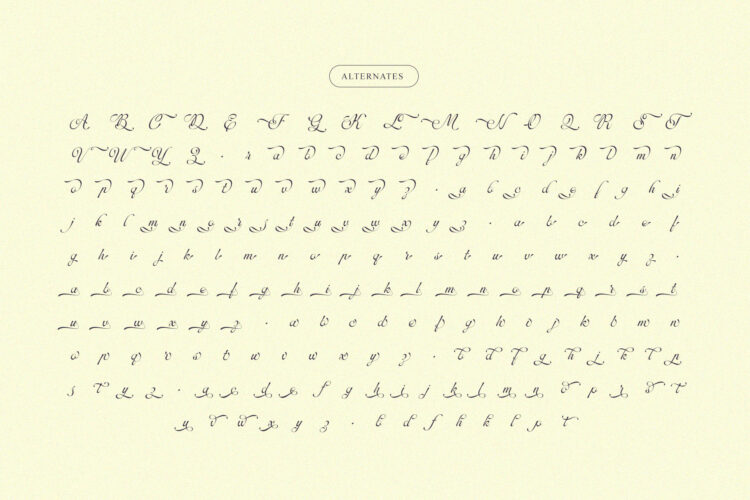 ALTERNATES
A B C D E F G K L M N O Q R S T
V U Y Z . r a b c d e f g h i j k l m n
o p q r s t u v w x y z . a b c d e f g h i
j k l m n o r s t u v w x y z . a b c d e f
g h i j k l m n o p q r s t u v w x y z .
a b c d e f g h i j k l m n o p q r s t
u v w x y z . a b c d e f g h i j k l m n
o p q r s t u v w x y z .
s t y z .
u v w x y z . b d f h k l p t